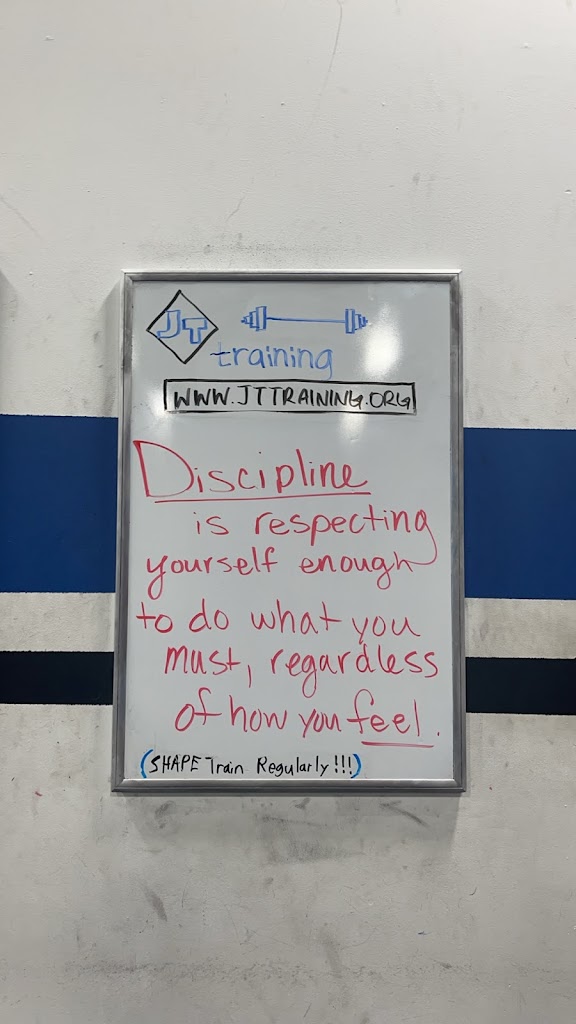 JT
training
WWW.JTTRAINING.ORG
Discipline
is respecting
yourself enough
to do what you
must, regardless
of how you feel.
(SHAPE Train Regularly!!!)